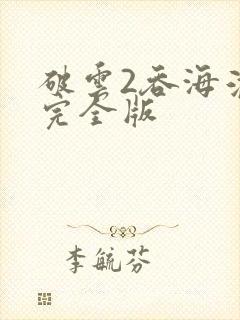 破雲2吞海
完全版
李毓芬